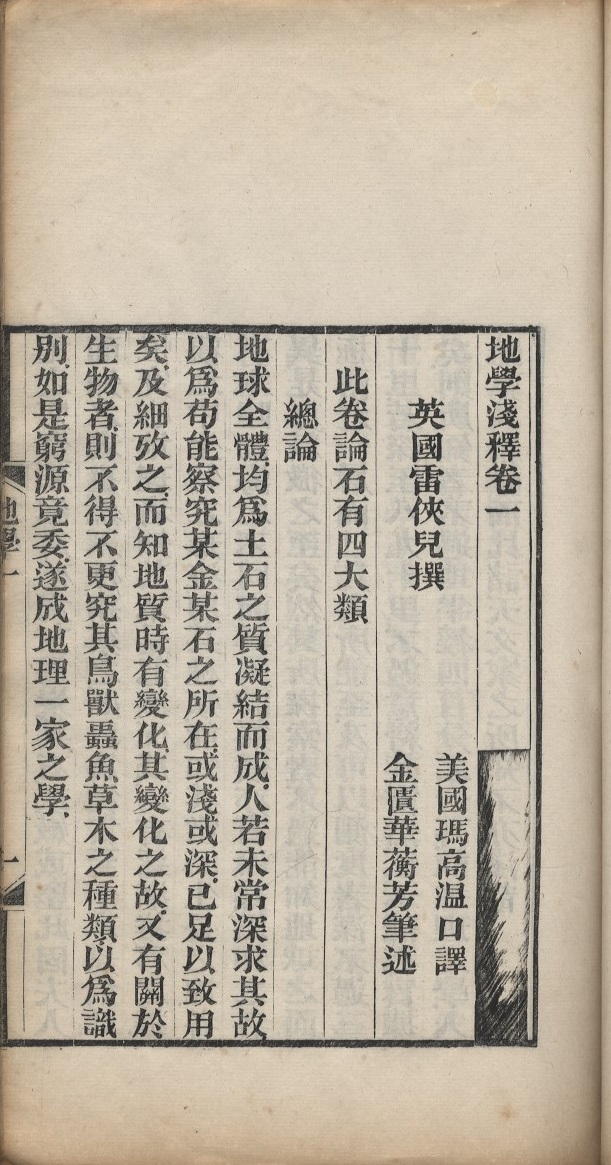 地學淺釋卷一
英國雷俠兒撰
美國瑪高温口譯
金匱華蘅芳筆述
此卷論石有四大類
總論
地球全體、均爲土石之質凝結而成、人若未常深求其故、
以爲苟能察究某金某石之所在、或淺或深、已足以致用
矣、及細攷之、而知地質時有變化、其變化之故、又有關於
生物者、則不得不更究其鳥獸蟲魚草木之種類、以爲識
別、如是窮源竟委、遂成地理一家之學、
地學一
一